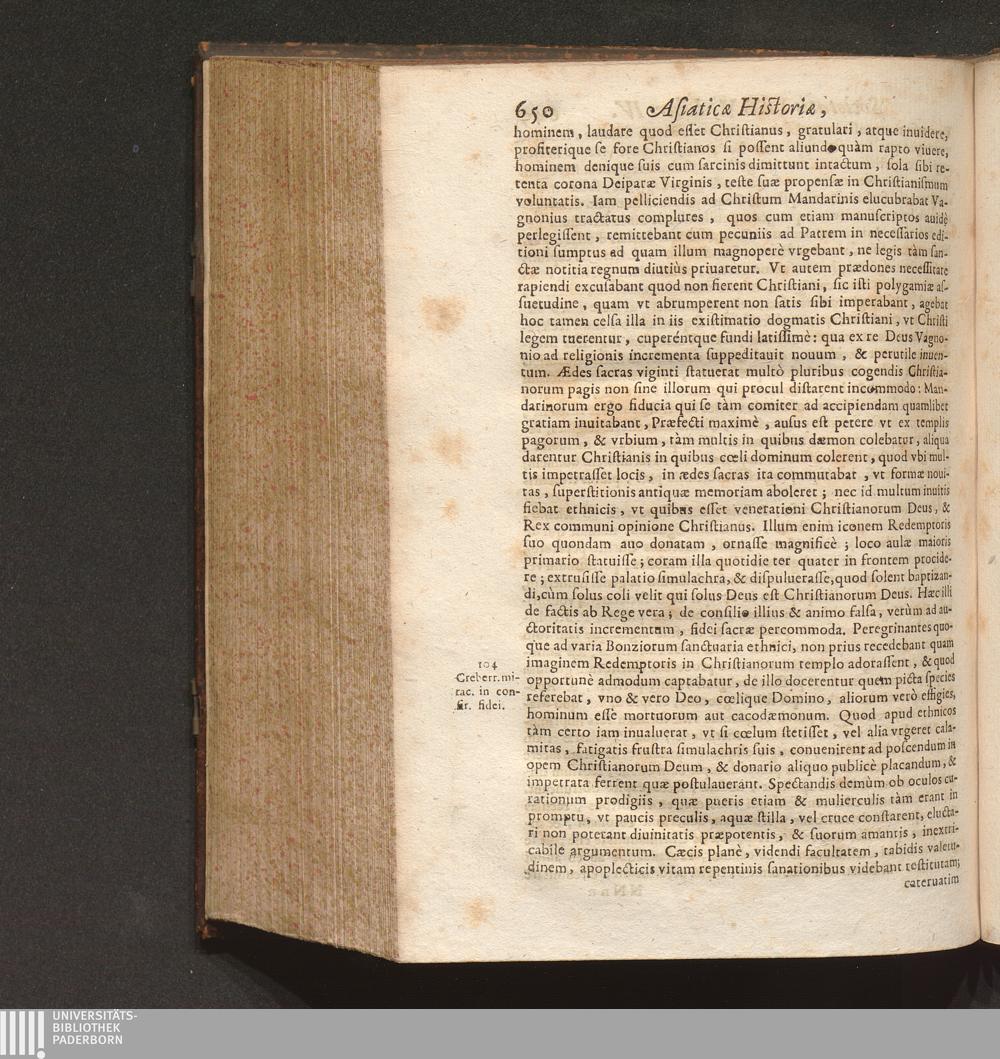 650 Aſiaticæ Hiſtoriæ,
hominem, laudare quod eſſet Chriſtianus, gratulari, atque inuidere,
profiterique ſe fore Chriſtianos ſi poſſent aliunde quàm rapto viuere,
hominem denique ſuis cum ſarcinis dimittunt intactum, ſola ſibi re-
tenta corona Deiparæ Virginis, teſte ſuæ propenſæ in Chriſtianiſmum
voluntatis. Iam pelliciendis ad Chriſtum Mandarinis elucubrabat Va-
gnonius tractatus complures, quos cum etiam manuſcriptos auidè
perlegiſſent, remittebant cum pecuniis ad Patrem in neceſſarios edi-
tioni ſumptus ad quam illum magnoperè vrgebant, ne legis tàm ſan-
ctæ notitia regnum diutiùs priuaretur. Vt autem prædones neceſſitate
rapiendi excuſabant quod non fierent Chriſtiani, ſic iſti polygamiæ aſ-
ſuetudine, quam vt abrumperent non ſatis ſibi imperabant, agebat
hoc tamen celſa illa in iis exiſtimatio dogmatis Chriſtiani, vt Chriſti
legem tuerentur, cuperéntque fundi latiſſimè: qua ex re Deus Vagno-
nio ad religionis incrementa ſuppeditauit nouum, & perutile inuen-
tum. Ædes ſacras viginti ſtatuerat multò pluribus cogendis Chriſtia-
norum pagis non ſine illorum qui procul diſtarent incommodo: Man-
darinorum ergo fiducia qui ſe tàm comiter ad accipiendam quamlibet
gratiam inuitabant, Præfecti maximè, auſus eſt petere vt ex templis
pagorum, & vrbium, tàm multis in quibus dæmon colebatur, aliqua
darentur Chriſtianis in quibus cœli dominum colerent, quod vbi mul-
tis impetraſſet locis, in ædes ſacras ita commutabat, vt formæ noui-
tas, ſuperſtitionis antiquæ memoriam aboleret; nec id multum inuitis
fiebat ethnicis, vt quibus eſſet venerationi Chriſtianorum Deus, &
Rex communi opinione Chriſtianus. Illum enim iconem Redemptoris
ſuo quondam auo donatam, ornaſſe magnificè; loco aulæ maioris
primario ſtatuiſſe; coram illa quotidie ter quater in frontem procide-
re; extruſiſſe palatio ſimulachra, & diſpulueraſſe, quod ſolent baptizan-
di, cùm ſolus coli velit qui ſolus Deus eſt Chriſtianorum Deus. Hæc illi
de factis ab Rege vera; de conſilio illius & animo falſa, verùm ad au-
ctoritatis incrementum, fidei ſacræ percommoda. Peregrinantes quo-
que ad varia Bonziorum ſanctuaria ethnici, non prius recedebant quam
imaginem Redemptoris in Chriſtianorum templo adoraſſent, & quod
opportunè admodum captabatur, de illo docerentur quem picta ſpecies
referebat, vno & vero Deo, cœlique Domino, aliorum verò effigies,
hominum eſſe mortuorum aut cacodæmonum. Quod apud ethnicos
tàm certo iam inualuerat, vt ſi cœlum ſtetiſſet, vel alia vrgeret cala-
mitas, fatigatis fruſtra ſimulachris ſuis, conuenirent ad poſcendum in
opem Chriſtianorum Deum, & donario aliquo publicè placandum, &
impetrata ferrent quæ poſtulauerant. Spectandis demùm ob oculos cu-
rationum prodigiis, quæ pueris etiam & mulierculis tàm erant in
promptu, vt paucis preculis, aquæ ſtilla, vel cruce conſtarent, elucta-
ri non poterant diuinitatis præpotentis, & ſuorum amantis, inextri-
cabile argumentum. Cæcis planè, videndi facultatem, tabidis valetu-
dinem, apoplecticis vitam repentinis ſanationibus videbant reſtitutam;
cateruatim
104
Creberr. mi-
rac. in con-
fir. fidei.
UNIVERSITÄTS-
BIBLIOTHEK
PADERBORN